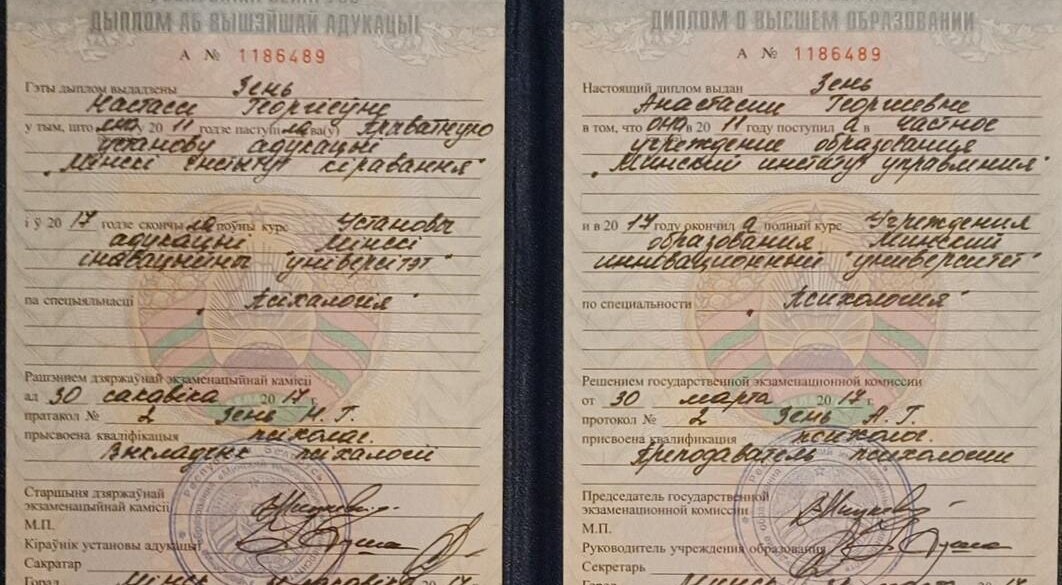 ДЫПЛОМ АБ ВЫШЭЙШАЙ АДУКАЦЫІ
А № 1186489
Гэты дыплом выдадзены Зень
Настассі Георгіеўне
у тым, што яна у 20 11 годзе паступіла ва(у) прыватную
установу адукацыі
"Мінскі інстытут кіравання"
і ў 20 17 годзе скончыла поўны курс Установы
адукацыі Мінскі
інавацыйны "універсітэт"
па спецыяльнасці "Псіхалогія"
Рашэннем дзяржаўнай экзаменацыйнай камісіі
ад 30 сакавіка 20 17 г.
пратакол № 2 Зень Н. Г.
прысвоена кваліфікацыя псіхолаг.
Выкладчык псіхалогіі
Старшыня дзяржаўнай
экзаменацыйнай камісіі
М.П.
Кіраўнік установы адукацыі
Сакратар
Горад Мінск сакавіка 20 17
ДИПЛОМ О ВЫСШЕМ ОБРАЗОВАНИИ
А № 1186489
Настоящий диплом выдан Зень
Анастасии Георгиевне
в том, что она в 20 11 году поступила в частное
учреждение образования
"Минский институт управления"
и в 20 17 году окончила полный курс Учреждения
образования Минский
инновационный "университет"
по специальности "Психология"
Решением государственной экзаменационной комиссии
от 30 марта 20 17 г.
протокол № 2 Зень А. Г.
присвоена квалификация психолог.
Преподаватель психологии
Председатель государственной
экзаменационной комиссии
М.П.
Руководитель учреждения образования
Секретарь
Город Минск марта 20 17